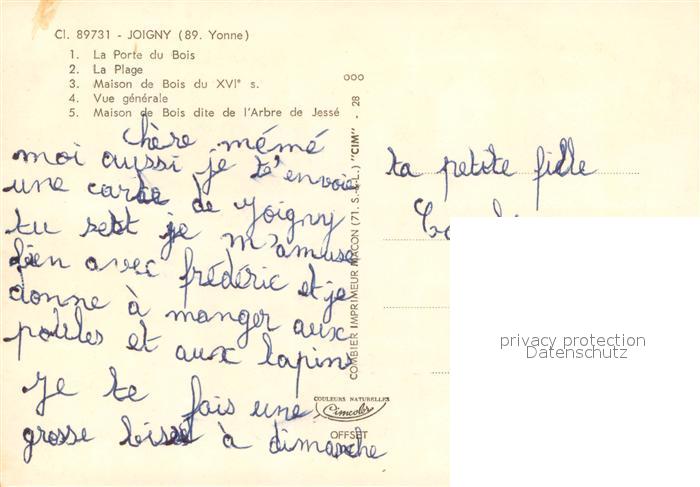 Cl. 89731 - JOIGNY (89. Yonne)
1. La Porte du Bois
2. La Plage
3. Maison de Bois du XVIᵉ s.
4. Vue générale
5. Maison de Bois dite de l'Arbre de Jessé
chère mémé
moi aussi je t'envoie
une carte de Joigny
tu sest je m'amuse
bien avec frédéric et je
donne à manger aux
poules et aux lapins
je te fais une
grosse bises à dimanche
COMBIER IMPRIMEUR MACON (71. S.-&-L.) "CIM" - 28
ooo
COULEURS NATURELLES
Cimcolor
OFFSET
ta petite fille
privacy protection
Datenschutz